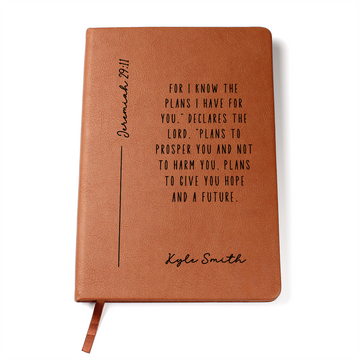 Jeremiah 29:11
FOR I KNOW THE
PLANS I HAVE FOR
YOU," DECLARES THE
LORD. "PLANS TO
PROSPER YOU AND NOT
TO HARM YOU. PLANS
TO GIVE YOU HOPE
AND A FUTURE.
Kyle Smith